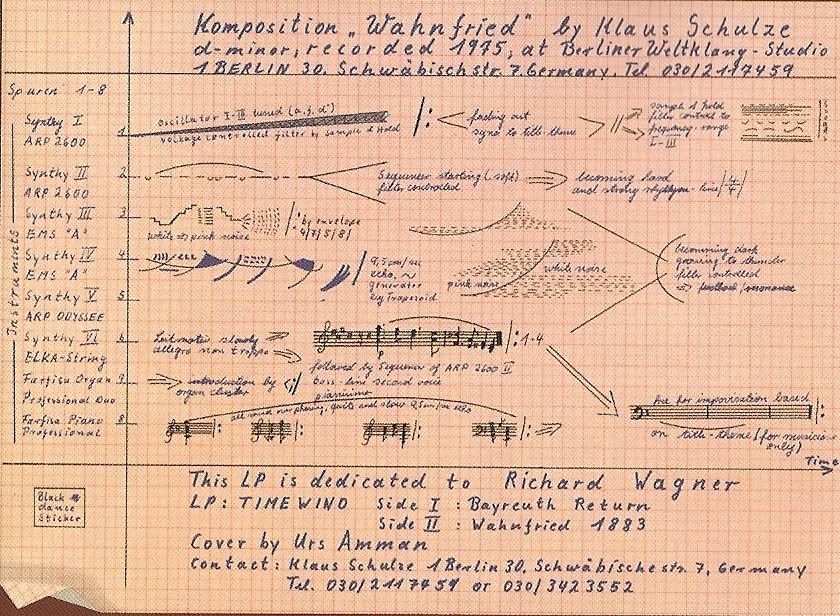 Komposition „Wahnfried" by Klaus Schulze
d-minor, recorded 1975, at Berliner Weltklang-Studio
1 BERLIN 30, Schwäbischstr. 7, Germany, Tel. 030/2117459
Spuren 1-8
Instruments
Synthy I
ARP 2600
1
Oscillator I-III tuned (a, f, d')
Voltage controlled filter by Sample & Hold
fading out
sync to title-theme
sample & hold
filter control to
frequency-range
I-III
Synthy II
ARP 2600
2
Sequencer starting (soft)
filter controlled
becoming hard
and strong rhythm-line 4/4
Synthy III
EMS "A"
3
white => pink noise
by envelope
4/7/5/8/
Synthy IV
EMS "A"
4
9,5 cm/sec
echo, ~
generator
by trapezoid
pink noise
white noise
becomming dark
growing to thunder
filter controlled
=> feedback/resonance
Synthy V
ARP ODYSSEE
5
Synthy VI
ELKA-String
6
Leitmotiv slowly
allegro non troppo
p
1-4
followed by Sequencer of ARP 2600 II
Farfisa Organ
Professional Duo
7
introduction by
organ cluster
bass-line second voice
pianissimo
Farfisa Piano
Professional
8
and slow 9,5 cm/sec echo
Arp improvisation based
on title-theme (for musicians
only)
Time
This LP is dedicated to Richard Wagner
LP: TIMEWIND Side I : Bayreuth Return
Side II : Wahnfried 1883
Black
dance
Sticker
Cover by Urs Amman
Contact: Klaus Schulze 1 Berlin 30, Schwäbische str. 7, Germany
Tel. 030/2117459 or 030/3423552